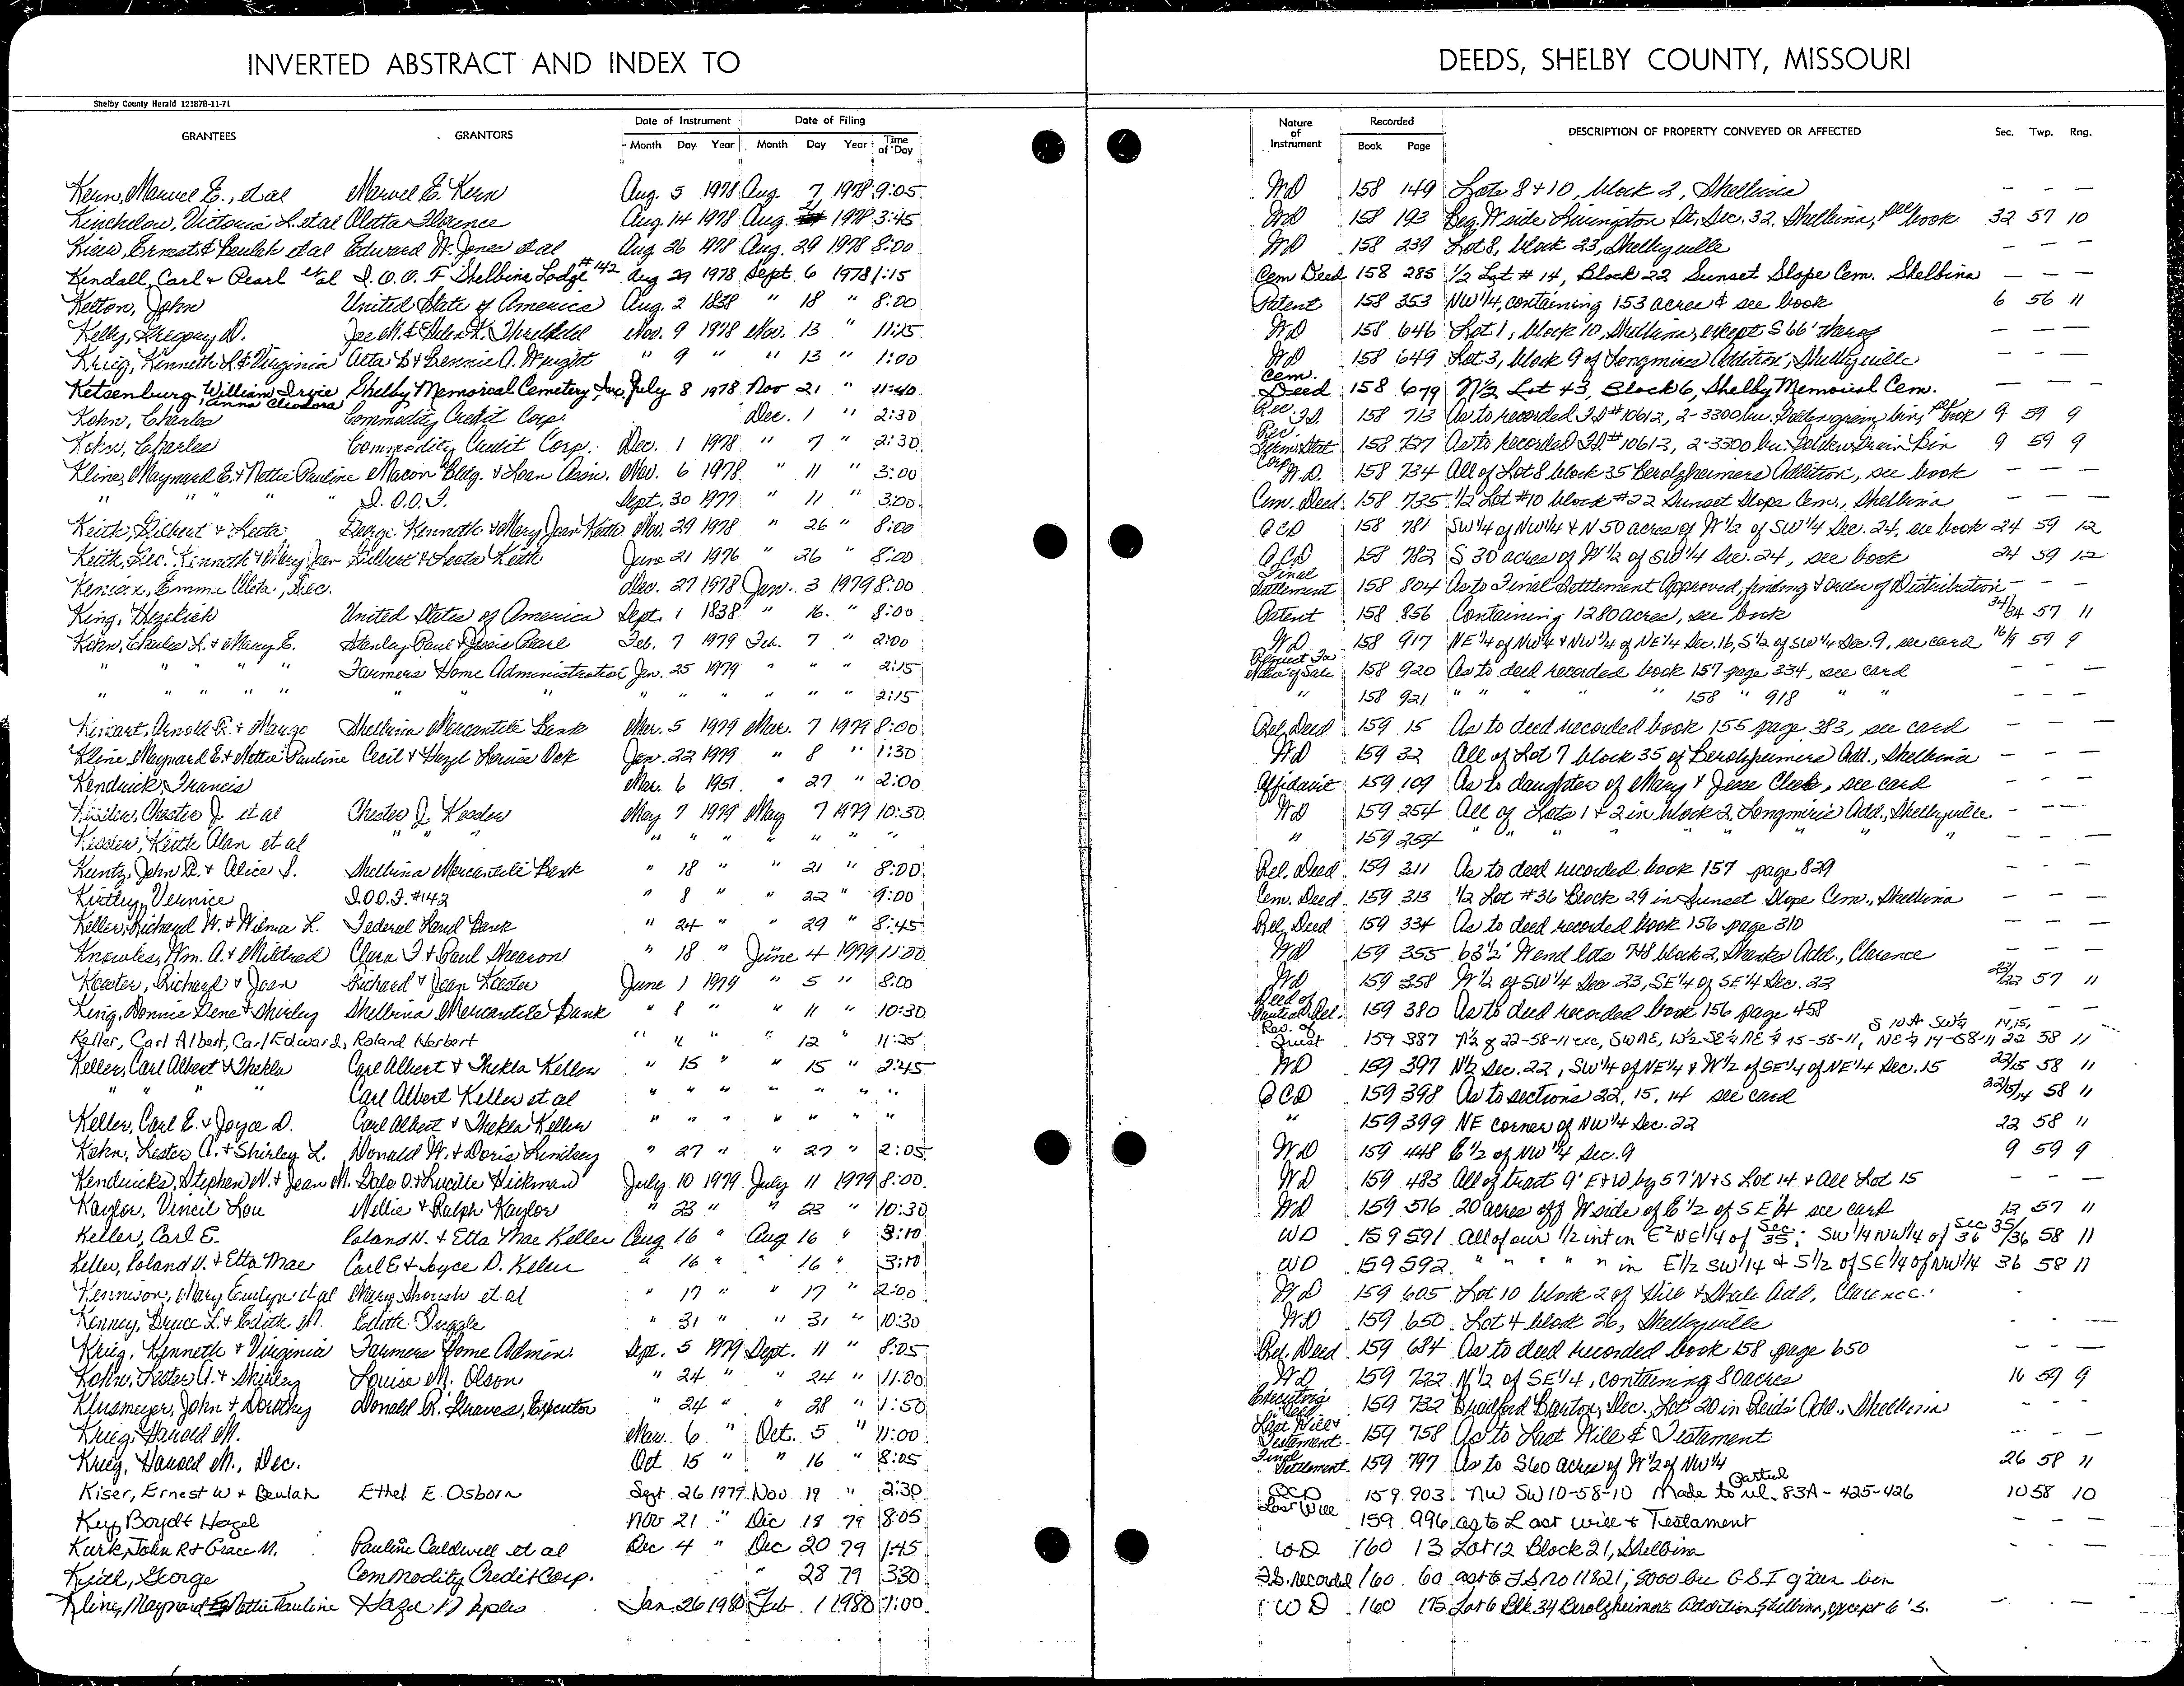 INVERTED ABSTRACT AND INDEX TO
DEEDS, SHELBY COUNTY, MISSOURI
Shelby County Herald 12187B-11-71
GRANTEES GRANTORS Date of Instrument Month Day Year Date of Filing Month Day Year Time of Day Nature of Instrument Recorded Book Page DESCRIPTION OF PROPERTY CONVEYED OR AFFECTED Sec. Twp. Rng.
Kern, Marvel E., et al Marvel E. Kern Aug. 5 1978 Aug. 7, 1978 9:05 WD 158 149 Lots 8 + 10, block 2, Shelbina — — —
Kincheloe, Victoria L. et al Oletta Florence Aug. 14 1978 Aug. 1978 3:45 WD 158 193 Beg. W side Livingston St., Sec. 32, Shelbina, see book 32 57 10
Kiser, Ernest & Beulah et al Edward W. Jones et al Aug 26 1978 Aug. 29 1978 8:00 WD 158 239 Lot 8, block 23, Shelbyville — — —
Kendall, Carl + Pearl et al I.O.O.F Shelbina Lodge #142 Aug 29 1978 Sept. 6 1978 1:15 Cem Deed 158 285 1/2 Lot # 14, Block 22 Sunset Slope Cem. Shelbina — — —
Kelton, John United State of America Aug. 2 1838 " 18 " 8:00 Patent 158 353 NW 1/4, containing 153 acres & see book 6 56 11
Kelly, Gregory D. Joe M. & Helen K. Threlkeld Nov. 9 1978 Nov. 13 " 11:15 WD 158 646 Lot 1, block 10, Shelbina, except S 66' thereof — — —
Krieg, Kenneth L. & Virginia Acta D & Bennie A. Wright " 9 " " 13 " 1:00 WD 158 649 Lot 3, block 9 of Longmires Addition, Shelbyville — — —
Ketsenburg, William Irvie Anna Cleodora Shelby Memorical Cemetery, Inc. July 8 1978 Nov 21 " 11:40 Cem. Deed 158 679 N 1/2 Lot 43, Block 6, Shelby Memorial Cem. — — —
Kohn, Charles Commodity Credit Corp. Dec. 1 " 2:30 Rec. F.S. 158 713 As to recorded F.S #10612, 2-3300 bu. grain bin, see book 9 59 9
Kohn, Charles Commodity Credit Corp. Dec. 1 1978 " 7 " 2:30 Rec. 158 727 As to recorded F.S #10613, 2-3300 bu. Golden Grain Bin 9 59 9
Kline, Maynard E. & Nettie Pauline Macon Bldg. & Loan Assn. Nov. 6 1978 " 11 " 3:00 Corp. W.D. 158 734 All of Lot 8 block 35 Berolzheimers Addition, see book — — —
" " " " I.O.O.F. Sept. 30 1977 " 11 " 3:00 Cem. Deed 158 735 1/2 Lot #10 block #22 Sunset Slope Cem., Shelbina — — —
Keith, Gilbert & Leota George Kenneth & Mary Jean Keith Nov. 29 1978 " 26 " 8:00 QCD 158 781 SW 1/4 of NW 1/4 & N 50 acres of W 1/2 of SW 1/4 Sec. 24, see book 24 59 12
Keith, Geo. Kenneth & Mary Jean Gilbert & Leota Keith June 21 1976 " 26 " 8:00 QCD 158 782 S 30 acres of W 1/2 of SW 1/4 Sec. 24, see book 24 59 12
Emma Dec. Dec. 27 1978 Jan. 3 1979 8:00 Final Settlement 158 804 As to Final Settlement Approved, finding & Order of Distribution — — —
King, Hezekiah United States of America Sept. 1 1838 " 16. " 8:00 Patent 158 856 Containing 1280 acres, see book 34/24 57 11
Kohn, Charles L. & Mary E. Stanley Paul & Josie Pearl Feb. 7 1979 Feb. 7 " 2:00 WD 158 917 NE 1/4 of NW 1/4 & NW 1/4 of NE 1/4 Sec. 16, S 1/2 of SW 1/4 Sec. 9, see card 16/9 59 9
" " " " " Farmers Home Administration Jan. 25 1979 " " " 2:15 Request For Notice of Sale 158 920 As to deed recorded book 157 page 334, see card — — —
" " " " " " " " " " " " " " 2:15 " 158 921 " " " " 158 " 918 " " — — —
Arnold R. & Margo Shelbina Mercantile Bank Mar. 5 1979 Mar. 7 1979 8:00 Rel. Deed 159 15 As to deed recorded book 155 page 383, see card — — —
Kline, Maynard E. & Nettie Pauline Cecil & Hazel Louise Ock Jan. 22 1979 " 8 " 1:30 WD 159 32 All of Lot 7 block 35 of Berolzheimers Add., Shelbina — — —
Kendrick, Francis Mar. 6 1951 " 27 " 2:00 Affidavit 159 109 As to daughter of Mary & Jesse Cleek, see card — — —
Kesslen, Chester J. et al Chester J. Kesslen May 7 1979 May 7 1979 10:50 WD 159 254 All of Lots 1 & 2 in block 2, Longmire's Add., Shelbyville — — —
Kesslen, Keith Alan et al " " " " " " " " " " 159 254 " " " " " " " — — —
Kuntz, John R. & Alice S. Shelbina Mercantile Bank " 18 " " 21 " 8:00 Rel. Deed 159 311 As to deed recorded book 157 page 829 — — —
Kirtley, Vernice I.O.O.F. #142 " 8 " " 22 " 9:00 Cem. Deed 159 313 1/2 Lot #36 Block 29 in Sunset Slope Cem., Shelbina — — —
Keller, Richard W. & Wilma L. Federal Land Bank " 24 " " 29 " 8:45 Rel. Deed 159 334 As to deed recorded book 156 page 310 — — —
Knowles, Wm. A. & Mildred Clara F. & Paul Shearon " 18 " June 4 1979 11:00 WD 159 355 63 1/2' W end lots 7+8 block 2, Shanks Add., Clarence — — —
Koester, Richard & Jean Richard & Jean Koester June 1 1979 " 5 " 8:00 WD 159 358 W 1/2 of SW 1/4 Sec 23, SE 1/4 of SE 1/4 Sec. 22 23/22 57 11
King, Donnie Gene & Shirley Shelbina Mercantile Bank " 8 " " 11 " 10:30 Deed of Partial Rel. 159 380 As to deed recorded book 156 page 458 — — —
Keller, Carl Albert, Carl Edward, Roland Herbert " 11 " " 12 " 11:25 Rev. of Trust 159 387 N 1/2 of 22-58-11 exc, SW NE, W 1/2 SE 1/4 NE 1/4 15-58-11, NE 1/4 14-58-11 S 10 A SW 1/4 14,15, 22 58 11
Keller, Carl Albert & Thekla Carl Albert & Thekla Keller " 15 " " 15 " 2:45 WD 159 397 N 1/2 Sec. 22, SW 1/4 of NE 1/4 & W 1/2 of SE 1/4 of NE 1/4 Sec. 15 22/15 58 11
" " " Carl Albert Keller et al " " " " " " " QCD 159 398 As to sections 22, 15, 14 see card 22/15/14 58 11
Keller, Carl E. & Joyce D. Carl Albert & Thekla Keller " " " " " " " " 159 399 NE corner of NW 1/4 Sec. 22 22 58 11
Kohn, Lester A. & Shirley L. Donald W. & Doris Lindsey " 27 " " 27 " 2:05 WD 159 448 E 1/2 of NW 1/4 Sec. 9 9 59 9
Kendricks, Stephen N. & Jean M. Dale O. & Lucille Hickman July 10 1979 July 11 1979 8:00 WD 159 483 All of tract 9' E+W by 57' N+S Lot 14 & All Lot 15 — — —
Kaylor, Vincil Lou Nellie & Ralph Kaylor " 23 " " 23 " 10:30 WD 159 516 20 acres off W side of E 1/2 of SE 1/4 see card 13 57 11
Keller, Carl E. Roland H. & Etta Mae Keller Aug 16 " Aug 16 " 3:10 WD 159 591 All of our 1/2 int in E 2 NE 1/4 of Sec 35; SW 1/4 NW 1/4 of Sec 36 35/36 58 11
Keller, Roland H. & Etta Mae Carl E & Joyce D. Keller " 16 " " 16 " 3:10 WD 159 592 " " " " " in E 1/2 SW 1/4 & S 1/2 of SE 1/4 of NW 1/4 36 58 11
Kennison, Mary Evelyn et al Mary et al " 17 " " 17 " 2:00 WD 159 605 Lot 10 block 2 of Add, Clarence.
Kenney, Bruce L. & Edith M. Edith Tuggle " 31 " " 31 " 10:30 WD 159 650 Lot 4 block 26, Shelbyville
Krieg, Kenneth & Virginia Farmers Home Admin. Sept. 5 1979 Sept. 11 " 8:05 Rel. Deed 159 684 As to deed recorded book 158 page 650 — — —
Kohn, Lester A. & Shirley Louise M. Olson " 24 " " 24 " 11:00 WD 159 722 N 1/2 of SE 1/4, containing 80 acres 16 59 9
Klusmeyer, John & Dorothy Donald R. Graves, Executor " 24 " " 28 " 1:50 Executor's Deed 159 732 Bradford Barton, Dec., Lot 20 in Reid's Add., Shelbina - - -
Krieg, Harold M. Mar. 6 " Oct. 5 " 11:00 Last Will & Testament 159 758 As to Last Will & Testament — — —
Krieg, Harold M., Dec. Oct 15 " " 16 " 8:05 Final Settlement 159 797 As to S60 acres of W 1/2 of NW 1/4 26 58 11
Kiser, Ernest W & Beulah Ethel E Osborn Sept 26 1979 Nov 19 " 2:30 QCD 159 903 NW SW 10-58-10 Made to partial rel. 83A - 425-426 10 58 10
Key, Boyd & Hazel Nov 21 " Dec 18 79 8:05 Last Will 159 996 as to Last Will & Testament — — —
Kurk, John R & Grace M. Pauline Caldwell et al Dec 4 " Dec 20 79 1:45 WD 160 13 Lot 12 Block 21, Shelbina
Keith, George Commodity Credit Corp. " 28 79 3:30 F.S. recorded 160 60 as to F.S. no 11821; 8000 bu G.S.I grain bin
Kline, Maynard E & Nettie Pauline Hazel Jan. 26 1980 Feb. 1 1980 1:00 WD 160 175 Lot 6 Blk 34 Berolzheimer's Addition, Shelbina, except 6' S.